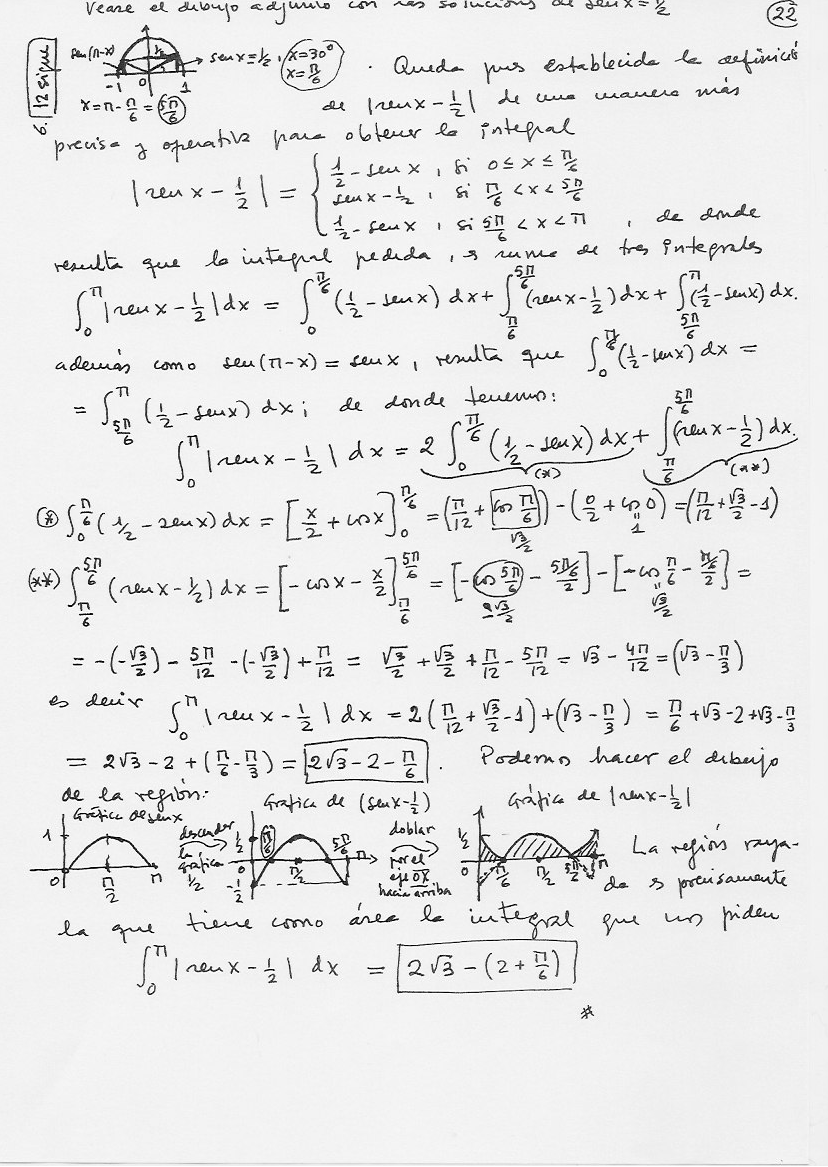 Véase el dibujo adjunto con las soluciones de sen x = 1/2
22
6. 12 sigue
sen(π-x) → sen x = 1/2, x = 30º
x = π/6
-1 0 1
x = π - π/6 = 5π/6
. Queda pues establecida la definición
de |sen x - 1/2| de una manera más
precisa y operativa para obtener la integral
|sen x - 1/2| = { 1/2 - sen x, si 0 ≤ x ≤ π/6
sen x - 1/2, si π/6 < x < 5π/6
1/2 - sen x, si 5π/6 < x < π, de donde
resulta que la integral pedida, es suma de tres integrales
∫₀^π |sen x - 1/2| dx = ∫₀^{π/6} (1/2 - sen x) dx + ∫_{π/6}^{5π/6} (sen x - 1/2) dx + ∫_{5π/6}^π (1/2 - sen x) dx.
además como sen(π-x) = sen x, resulta que ∫₀^{π/6} (1/2 - sen x) dx =
= ∫_{5π/6}^π (1/2 - sen x) dx; de donde tenemos:
∫₀^π |sen x - 1/2| dx = 2 ∫₀^{π/6} (1/2 - sen x) dx + ∫_{π/6}^{5π/6} (sen x - 1/2) dx.
(*) (**)
(*) ∫₀^{π/6} (1/2 - sen x) dx = [x/2 + cos x]₀^{π/6} = (π/12 + cos π/6) - (0/2 + cos 0) = (π/12 + √3/2 - 1)
√3/2 1
(**) ∫_{π/6}^{5π/6} (sen x - 1/2) dx = [-cos x - x/2]_{π/6}^{5π/6} = [-cos 5π/6 - 5π/6/2] - [-cos π/6 - π/6/2] =
-√3/2 √3/2
= -(-√3/2) - 5π/12 - (-√3/2) + π/12 = √3/2 + √3/2 + π/12 - 5π/12 = √3 - 4π/12 = (√3 - π/3)
es decir ∫₀^π |sen x - 1/2| dx = 2(π/12 + √3/2 - 1) + (√3 - π/3) = π/6 + √3 - 2 + √3 - π/3
= 2√3 - 2 + (π/6 - π/3) = 2√3 - 2 - π/6. Podemos hacer el dibujo
de la región:
Gráfica de sen x
1 0 π/2 π
descender la gráfica 1/2
Gráfica de (sen x - 1/2)
1/2 0 -1/2 π/6 π/2 5π/6 π
doblar por el eje OX hacia arriba
Gráfica de |sen x - 1/2|
1/2 0 π/6 π/2 5π/2 π
La región raya-
da es precisamente
la que tiene como área la integral que nos piden
∫₀^π |sen x - 1/2| dx = 2√3 - (2 + π/6)
#